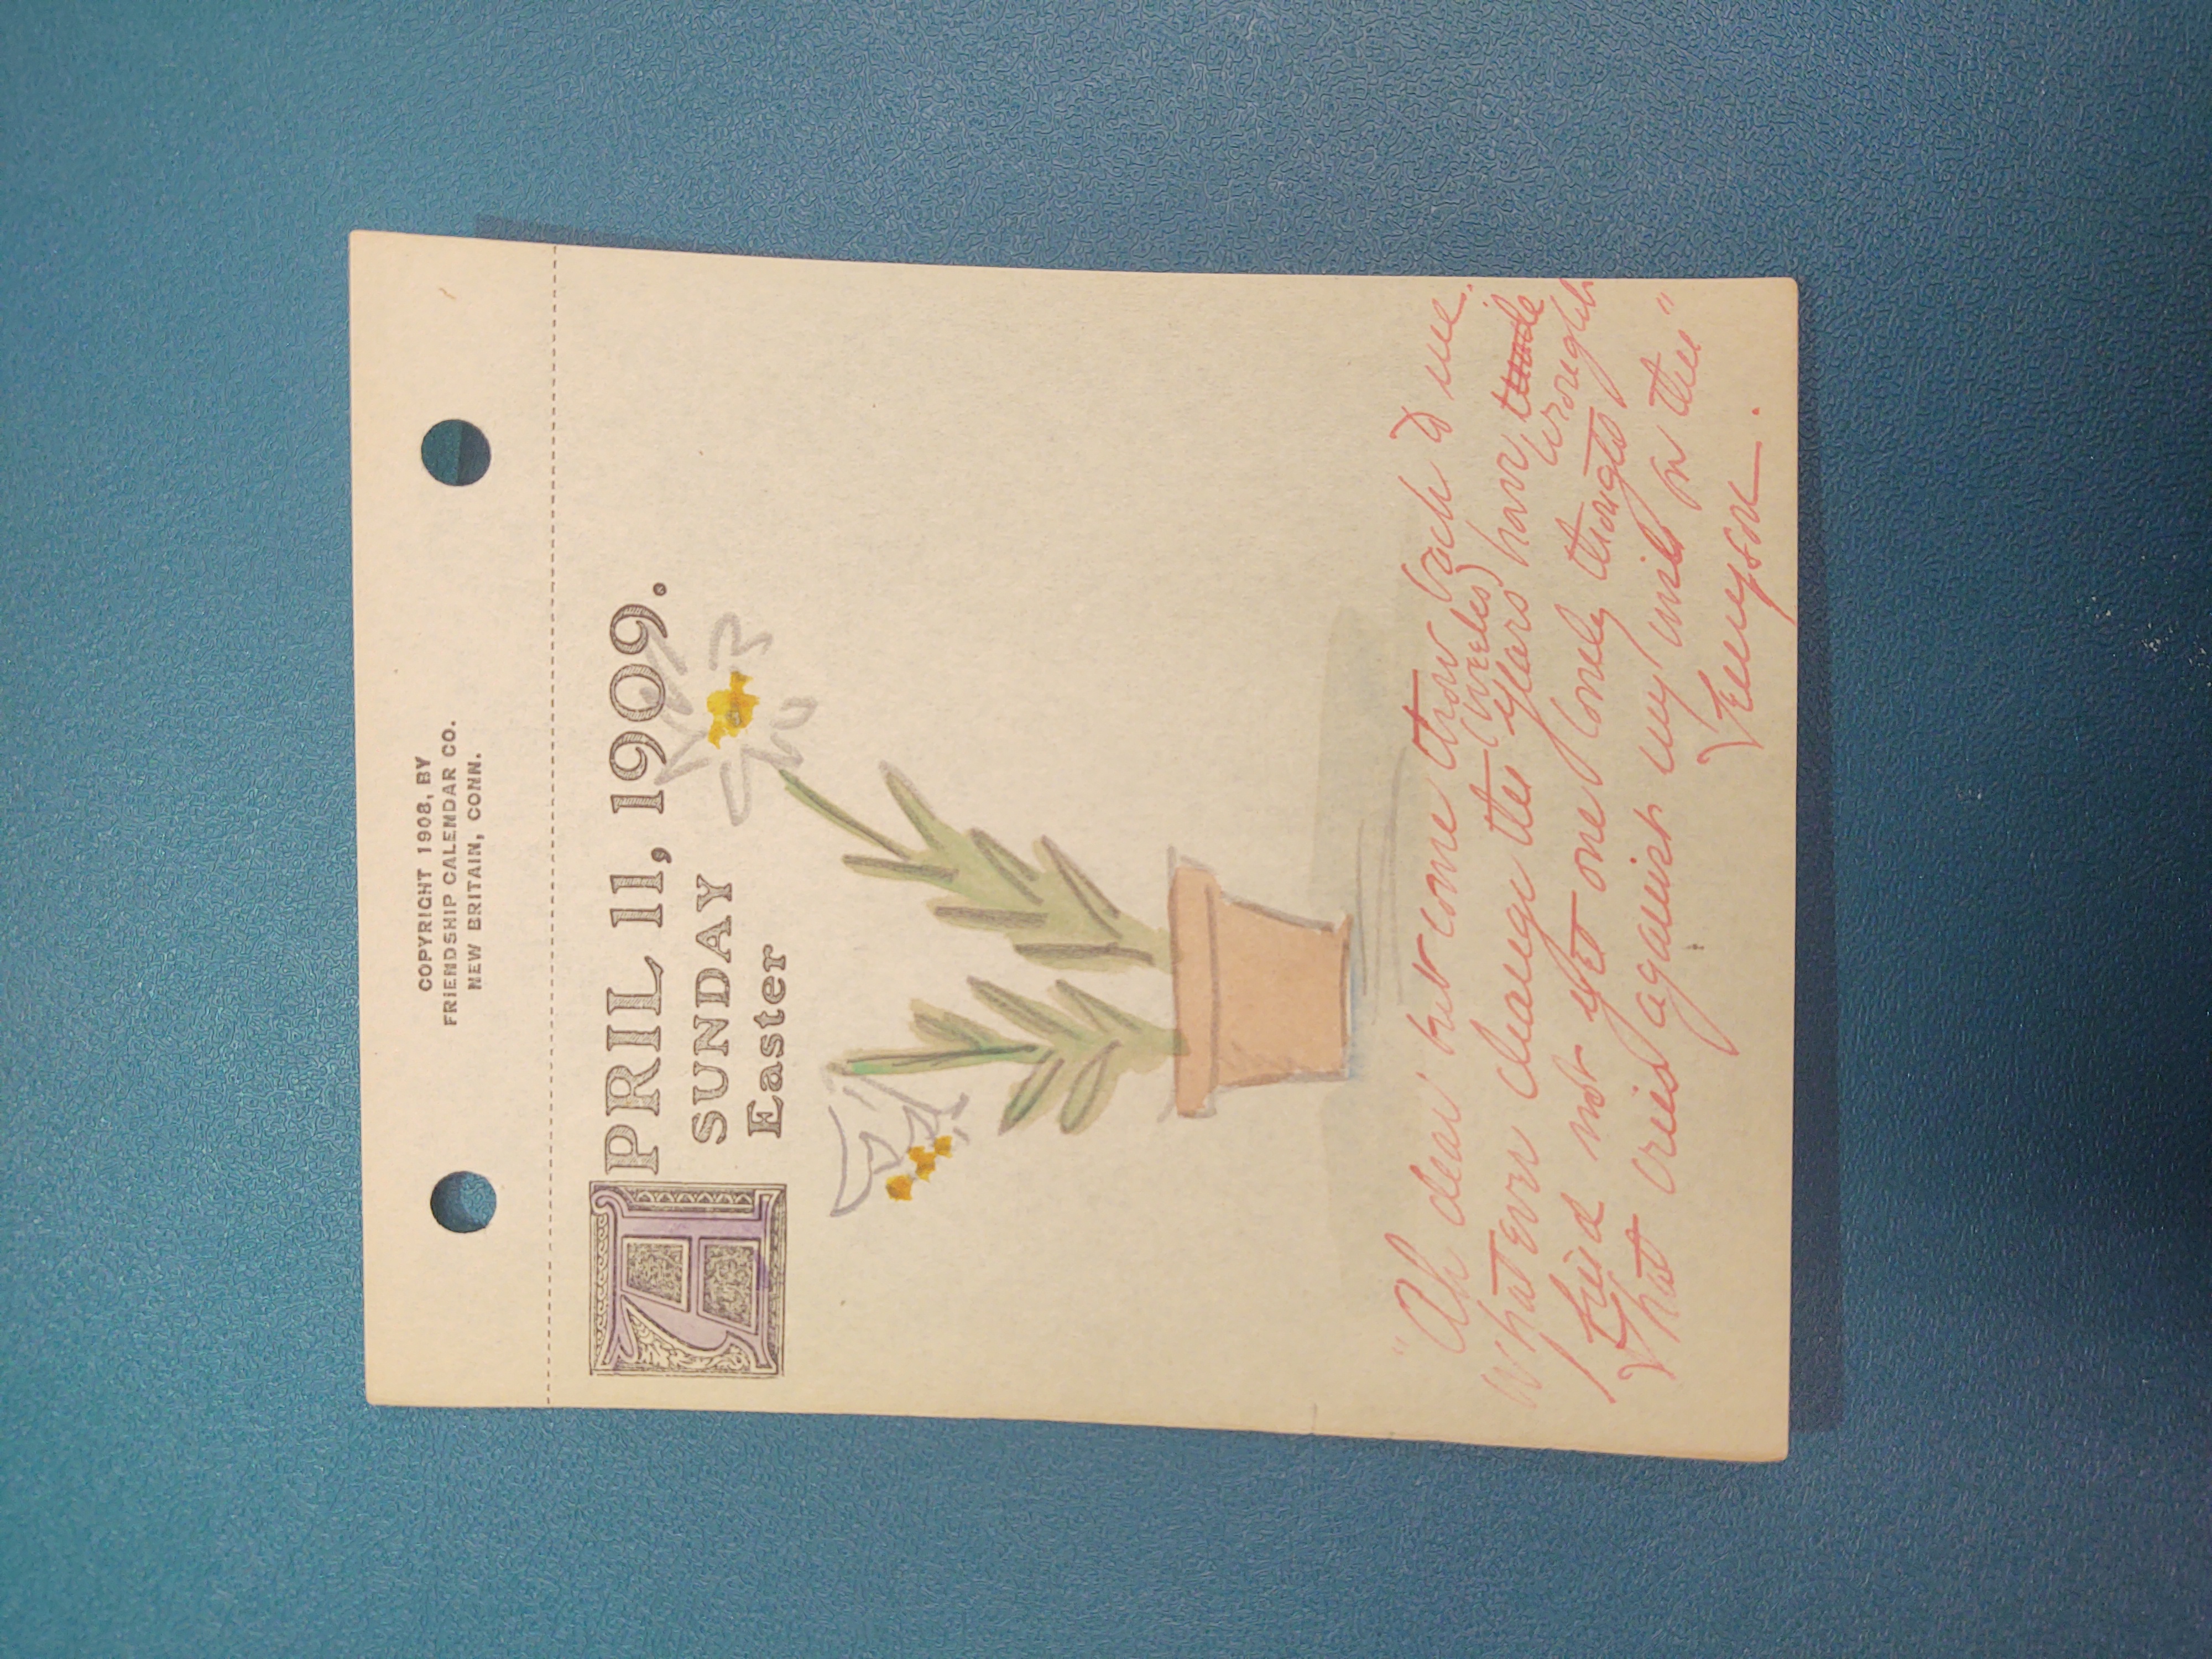 COPYRIGHT 1908, BY
FRIENDSHIP CALENDAR CO.
NEW BRITAIN, CONN.
APRIL 11, 1909.
SUNDAY
Easter
"Ah dear but come thow back to me.
(weeks)
Whatever change the years have made
wrought
I find not yet one lonely thought
That cries against my wish for thee"
Tennyson.